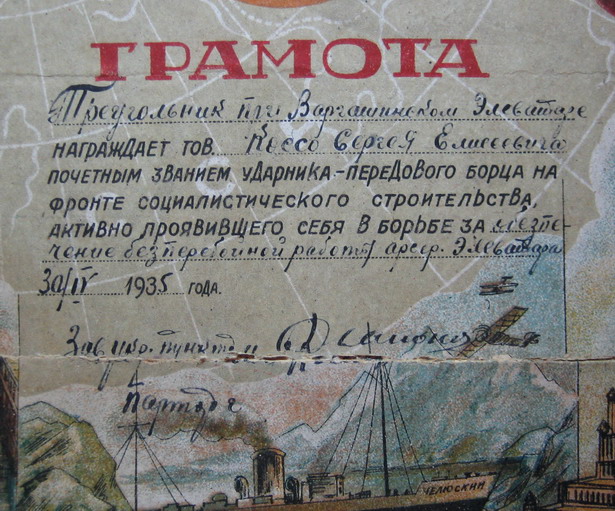 ГРАМОТА
Треугольник при Варгашинском Элеваторе
НАГРАЖДАЕТ ТОВ. Кессо Сергея Елисеевича
ПОЧЕТНЫМ ЗВАНИЕМ УДАРНИКА-ПЕРЕДОВОГО БОРЦА НА
ФРОНТЕ СОЦИАЛИСТИЧЕСКОГО СТРОИТЕЛЬСТВА,
АКТИВНО ПРОЯВИВШЕГО СЕБЯ В БОРЬБЕ ЗА обезпе-
чение безперебойной работы Элеватора
30/IV 1935 ГОДА.
Зав
Парторг
ЧЕЛЮСКИН